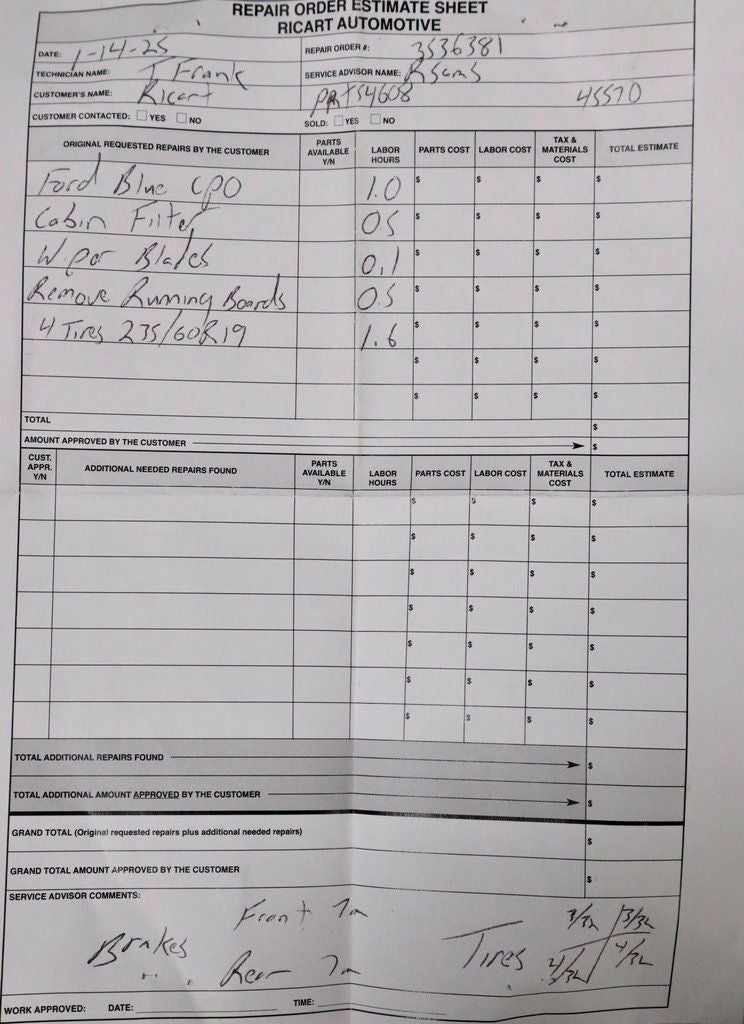 REPAIR ORDER ESTIMATE SHEET
RICART AUTOMOTIVE
DATE: 1-14-25 REPAIR ORDER #: 3536381
TECHNICIAN NAME: T Frank SERVICE ADVISOR NAME: RSams
CUSTOMER'S NAME: Ricart PRT54608 45570
CUSTOMER CONTACTED: YES NO SOLD: YES NO
ORIGINAL REQUESTED REPAIRS BY THE CUSTOMER PARTS AVAILABLE Y/N LABOR HOURS PARTS COST LABOR COST TAX & MATERIALS COST TOTAL ESTIMATE
Ford Blue CPO 1.0 $ $ $ $
Cabin Filter 0.5 $ $ $ $
Wiper Blades 0.1 $ $ $ $
Remove Running Boards 0.5 $ $ $ $
4 Tires 235/60R19 1.6 $ $ $ $
$ $ $ $
$ $ $ $
TOTAL $
AMOUNT APPROVED BY THE CUSTOMER $
CUST. APPR. Y/N ADDITIONAL NEEDED REPAIRS FOUND PARTS AVAILABLE Y/N LABOR HOURS PARTS COST LABOR COST TAX & MATERIALS COST TOTAL ESTIMATE
$ $ $ $
$ $ $ $
$ $ $ $
$ $ $ $
$ $ $ $
$ $ $ $
$ $ $ $
TOTAL ADDITIONAL REPAIRS FOUND $
TOTAL ADDITIONAL AMOUNT APPROVED BY THE CUSTOMER $
GRAND TOTAL (Original requested repairs plus additional needed repairs) $
GRAND TOTAL AMOUNT APPROVED BY THE CUSTOMER $
SERVICE ADVISOR COMMENTS:
Front 7m 3/32 3/32
Brakes Tires
Rear 7m 4/32 4/32
WORK APPROVED: DATE: TIME: